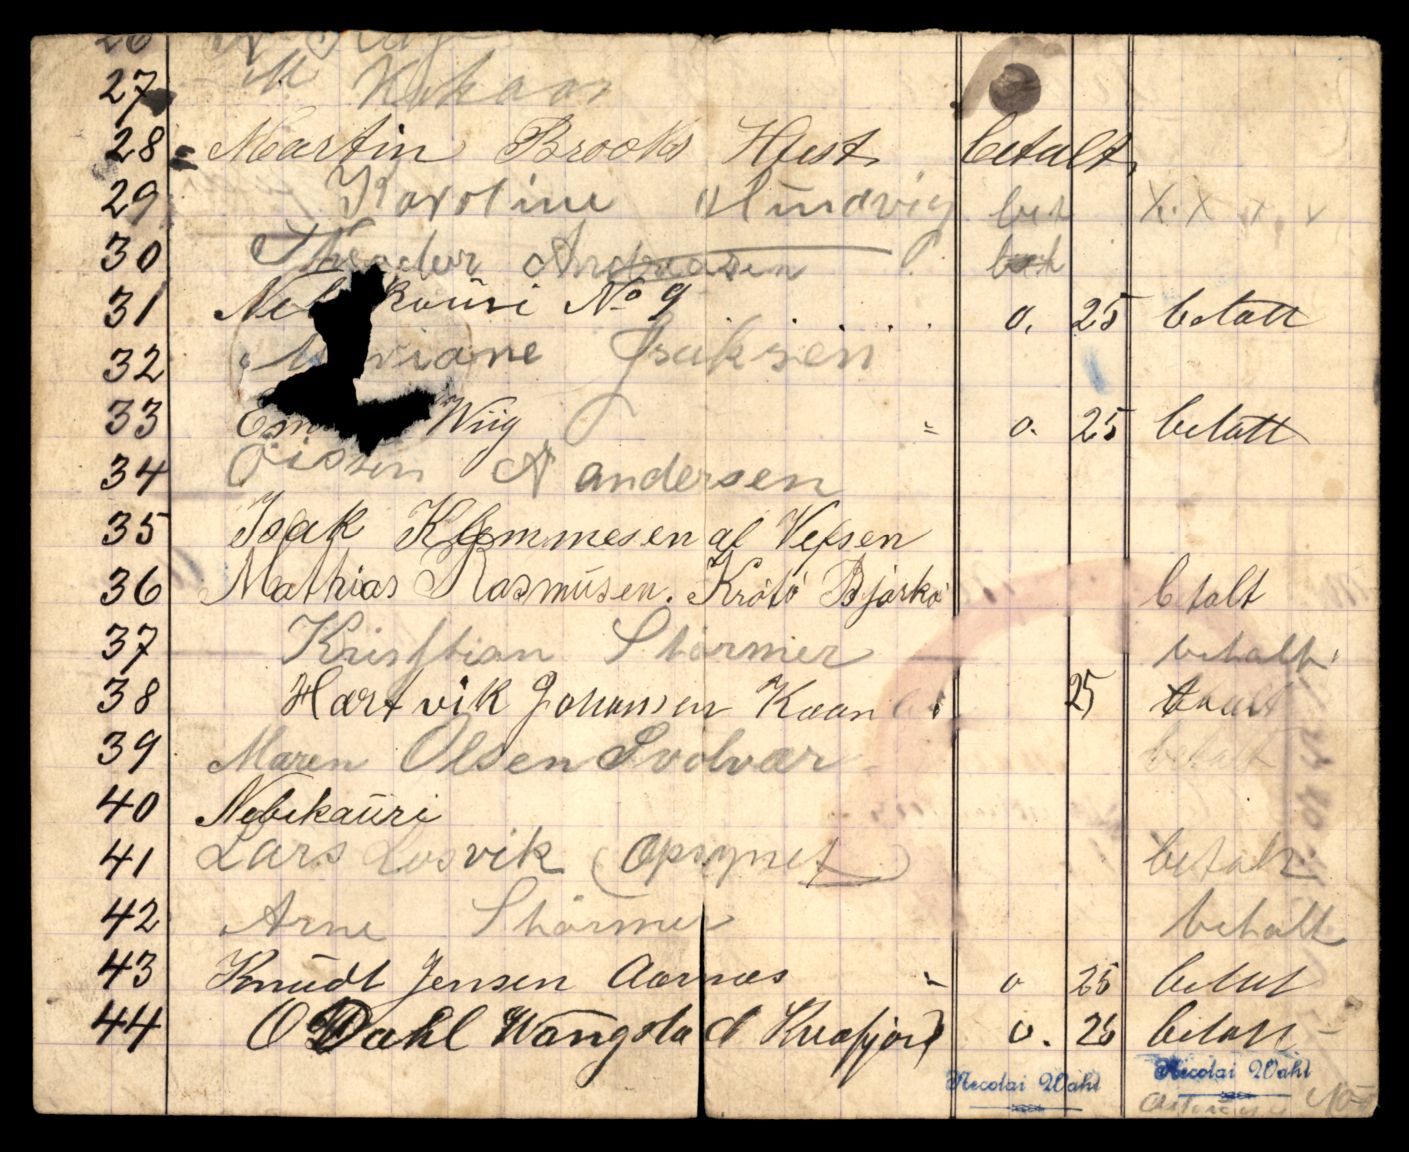 26
27 M
28 Martin Brooks Hest betalt
29 Karoline Mundvig bet X. X x x
30 Theodor Andreasen bet
31 Neb kauri No 9 0. 25 betalt
32 Mariane Isaksen
33 Wiig 0. 25 betalt
34 N andersen
35 Isak Klemmesen af Vefsen
36 Mathias Rasmusen. Krøtø Bjarkø betalt
37 Kristian Størmer betalt
38 Hartvik Johansen Kaan 25 betalt
39 Maren Olsen Svolvær betalt
40 Nebekauri
41 Lars Losvik (Opsynet) betalt
42 Arne Størmer betalt
43 Knudt Jensen Aarnæs " 0 25 betalt
44 O Dahl Wangstad Kvæfjord 0. 25 betalt
Nicolai Wahl Nicolai Wahl